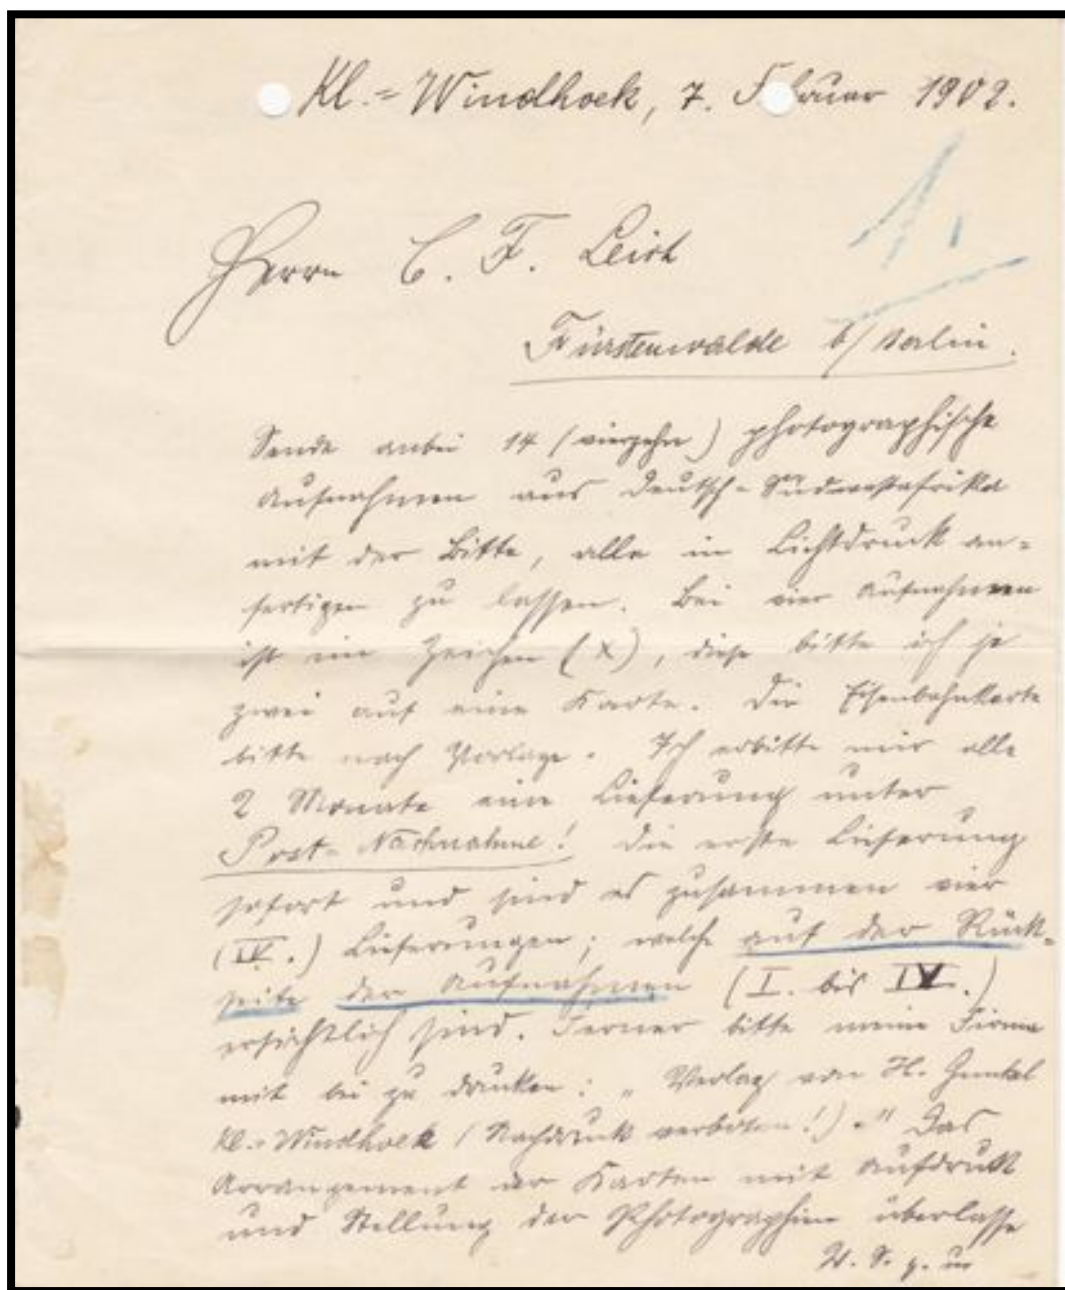 Kl.=Windhoek, 7. Februar 1902.
1.
Herrn C. F. Leist
Fürstenwalde b/ Berlin.
Sende anbei 14 (vierzehn) photographische
Aufnahmen aus Deutsch-Südwestafrika
mit der Bitte, alle in Lichtdruck an-
fertigen zu lassen. Bei vier Aufnahmen
ist ein Zeichen (X), diese bitte ich je
zwei auf eine Karte. Die Eisenbahnkarte
bitte nach Vorlage. Ich erbitte mir alle
2 Monate eine Lieferung unter
Post-Nachnahme! Die erste Lieferung
sofort und sind es zusammen vier
(IV.) Lieferungen; welche auf der Rück-
seite der Aufnahmen (I. bis IV.)
ersichtlich sind. Ferner bitte meine Firma
mit bei zu drucken: „Verlag von H.
Kl.-Windhoek (Nachdruck verboten!)." Das
Arrangement der Karten mit Aufdruck
und Stellung der Photographien überlasse